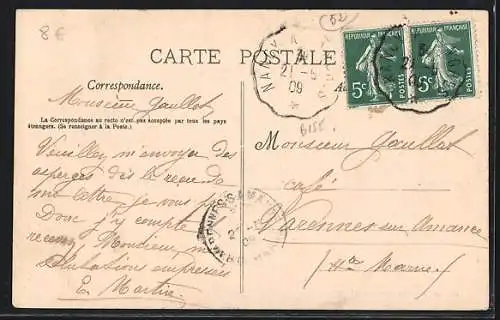 8€
52
CARTE POSTALE
RÉPUBLIQUE FRANÇAISE
5c POSTES
RÉPUBLIQUE FRANÇAISE
5c POSTES
NANCY A
21-5
09
6155
Correspondance.
La Correspondance au recto n'est pas acceptée par tous les pays
étrangers. (Se renseigner à la Poste.)
Monsieur Gaullet
Veuillez m'envoyer des
asperges dès la reçu de
ma lettre, je vous prie
Donc j'y compte
recevez Monsieur, m
Salutations empressées
E. Martin
Monsieur Gaullet
café
Varennes sur Amance
(Hte Marne)